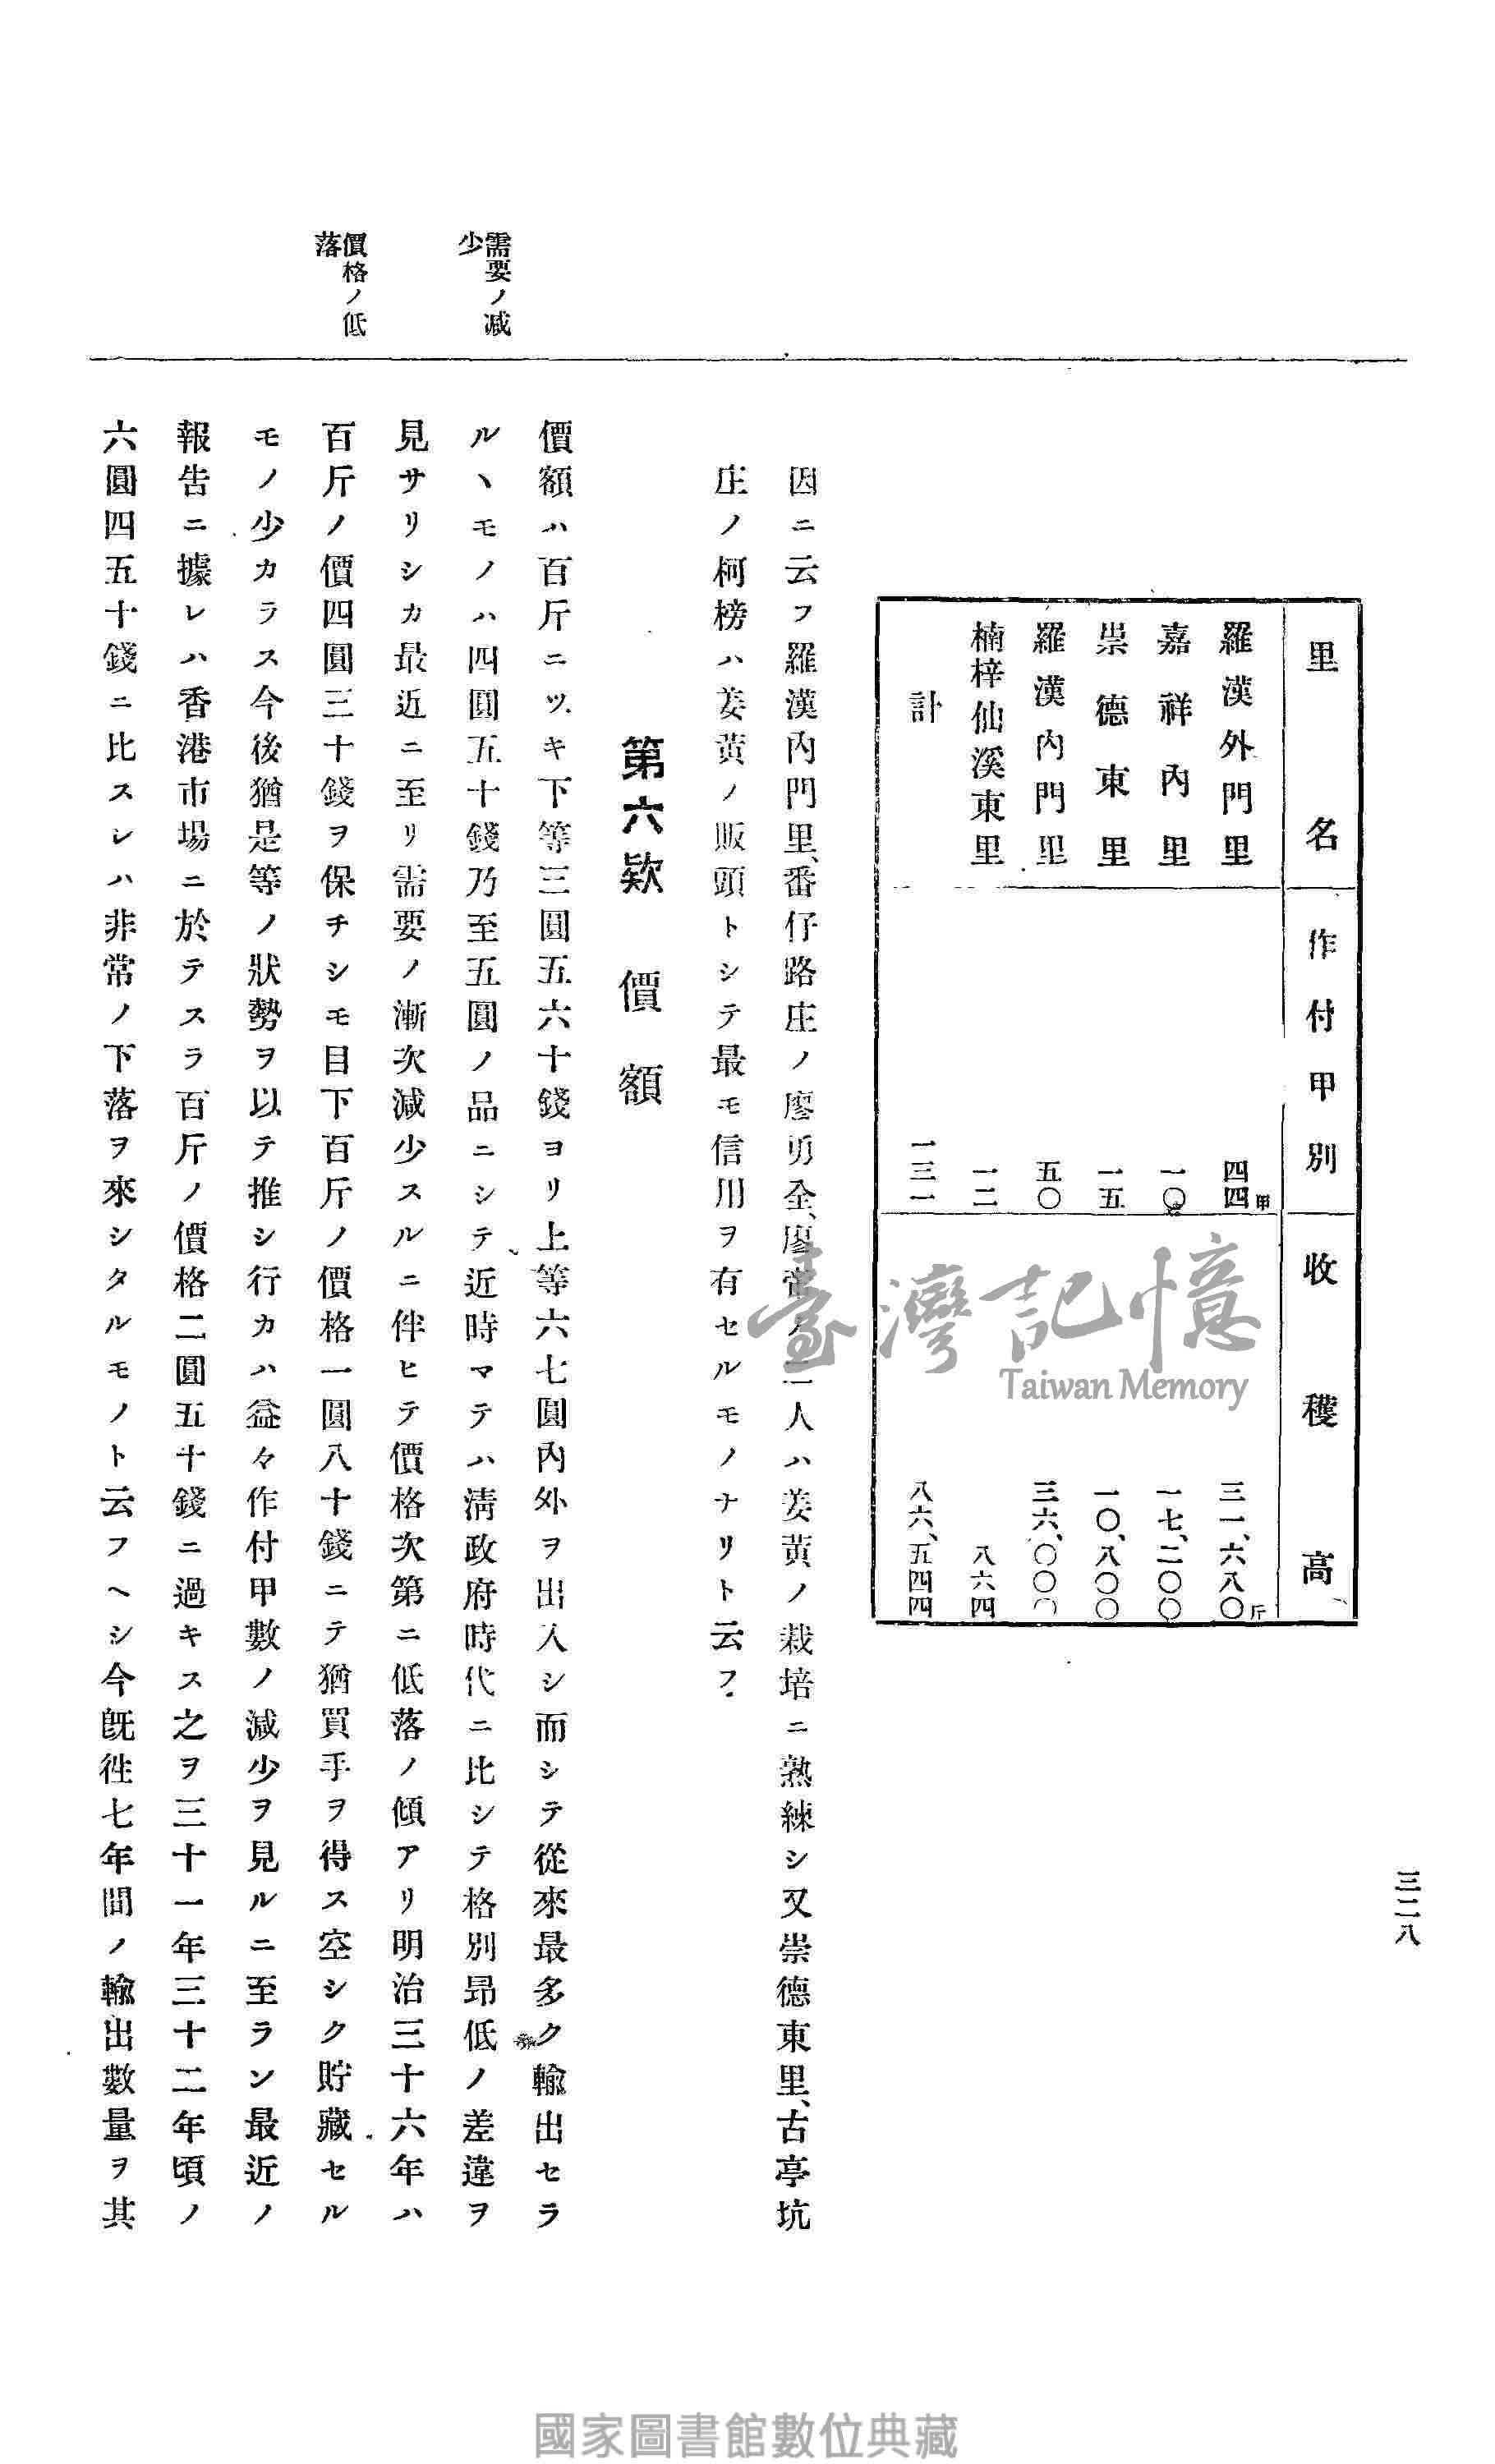 三二八
里名 作付甲別 收穫高
羅漢外門里 四四甲 三一、六八〇斤
嘉祥內里 一〇 一七、二〇〇
崇德東里 一五 一〇、八〇〇
羅漢內門里 五〇 三六、〇〇〇
楠梓仙溪東里 一二 八六四
計 一三一 八六、五四四
因ニ云フ羅漢內門里、番仔路庄ノ廖勇全、廖ノ二人ハ姜黃ノ栽培ニ熟練シ又崇德東里、古亭坑
庄ノ柯榜ハ姜黃ノ販頭トシテ最モ信用ヲ有セルモノナリト云フ
第六欵 價額
價額ハ百斤ニツキ下等三圓五六十錢ヨリ上等六七圓內外ヲ出入シ而シテ從來最多ク輸出セラ
需要ノ減
少
ルヽモノハ四圓五十錢乃至五圓ノ品ニシテ近時マテハ淸政府時代ニ比シテ格別昂低ノ差違ヲ
見サリシカ最近ニ至リ需要ノ漸次減少スルニ伴ヒテ價格次第ニ低落ノ傾アリ明治三十六年ハ
價格ノ低
落
百斤ノ價四圓三十錢ヲ保チシモ目下百斤ノ價格一圓八十錢ニテ猶買手ヲ得ス空シク貯藏セル
モノ少カラス今後猶是等ノ狀勢ヲ以テ推シ行カハ益々作付甲數ノ減少ヲ見ルニ至ラン最近ノ
報告ニ據レハ香港市場ニ於テスラ百斤ノ價格二圓五十錢ニ過キス之ヲ三十一年三十二年頃ノ
六圓四五十錢ニ比スレハ非常ノ下落ヲ來シタルモノト云フヘシ今旣徃七年間ノ輸出數量ヲ其
臺灣記憶
Taiwan Memory
國家圖書館數位典藏